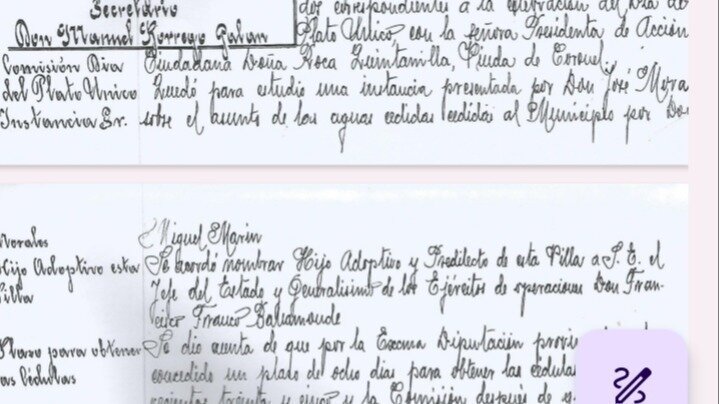 Secretario
Don Manuel Borrego Galan
des correspondientes a la celebración del Dia de
Plato Unico, con la señora Presidenta de Acción
Comisión Dia Ciudadana Doña Roca Quintanilla, Viuda de Coronel.
del Plato Unico Quedó para estudio una instancia presentada por Don José Mora
Instancia Sr. sobre el asunto de las aguas cedidas cedidas al Municipio por Don
Morales Miguel Marin
Hijo Adoptivo esta Se acordó nombrar Hijo Adoptivo y Predilecto de esta Villa a S. E. el
Villa Jefe del Estado y Generalisimo de los Ejércitos de operaciones Don Fran-
cisco Franco Bahamonde
Plazo para obtener Se dio cuenta de que por la Excma Diputación
las Cédulas concedido un plazo de ocho dias para obtener las cédulas
treinta y cinco y la Comisión después de